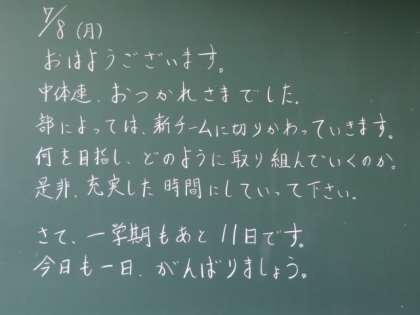 7/8 (月)
おはようございます。
中体連、おつかれさまでした。
部によっては、新チームに切りかわっていきます。
何を目指し、どのように取り組んでいくのか。
是非、充実した時間にしていって下さい。
さて、一学期もあと11日です。
今日も一日、がんばりましょう。